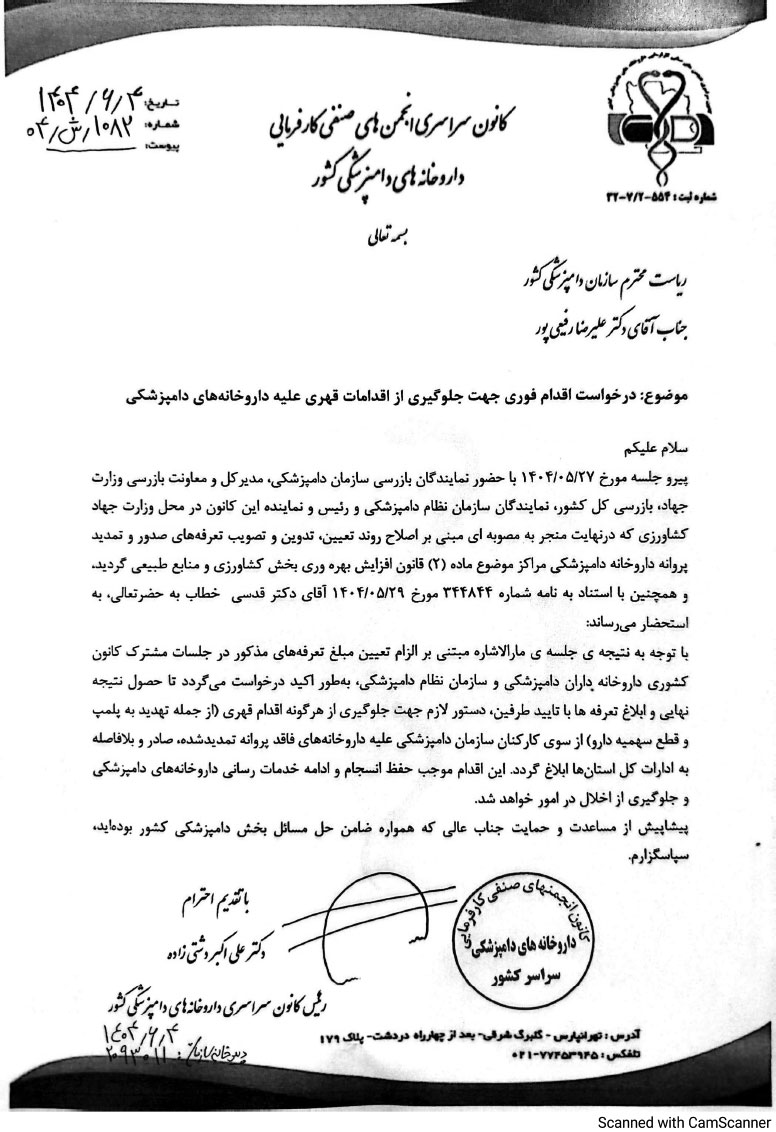 تاریخ: ۱۴۰۴/۶/۴
شماره: ۱۰۸۲/ش/۰۴
پیوست:
کانون سراسری انجمن های صنفی کارفرمایی
داروخانه های دامپزشکی کشور
شماره ثبت: ۵۵۴-۷/۲-۳۲
بسمه تعالی
ریاست محترم سازمان دامپزشکی کشور
جناب آقای دکتر علیرضا رفیعی پور
موضوع: درخواست اقدام فوری جهت جلوگیری از اقدامات قهری علیه داروخانه‌های دامپزشکی
سلام علیکم
پیرو جلسه مورخ ۱۴۰۴/۰۵/۲۷ با حضور نمایندگان بازرسی سازمان دامپزشکی، مدیرکل و معاونت بازرسی وزارت
جهاد، بازرسی کل کشور، نمایندگان سازمان نظام دامپزشکی و رئیس و نماینده این کانون در محل وزارت جهاد
کشاورزی که درنهایت منجر به مصوبه ای مبنی بر اصلاح روند تعیین، تدوین و تصویب تعرفه‌های صدور و تمدید
پروانه داروخانه دامپزشکی مراکز موضوع ماده (۲) قانون افزایش بهره وری بخش کشاورزی و منابع طبیعی گردید،
و همچنین با استناد به نامه شماره ۳۴۴۸۴۴ مورخ ۱۴۰۴/۰۵/۲۹ آقای دکتر قدسی خطاب به حضرتعالی، به
استحضار می‌رساند:
با توجه به نتیجه ی جلسه ی مارالاشاره مبتنی بر الزام تعیین مبلغ تعرفه‌های مذکور در جلسات مشترک کانون
کشوری داروخانه داران دامپزشکی و سازمان نظام دامپزشکی، به‌طور اکید درخواست می‌گردد تا حصول نتیجه
نهایی و ابلاغ تعرفه ها با تایید طرفین، دستور لازم جهت جلوگیری از هرگونه اقدام قهری (از جمله تهدید به پلمپ
و قطع سهمیه دارو) از سوی کارکنان سازمان دامپزشکی علیه داروخانه‌های فاقد پروانه تمدیدشده، صادر و بلافاصله
به ادارات کل استان‌ها ابلاغ گردد. این اقدام موجب حفظ انسجام و ادامه خدمات رسانی داروخانه‌های دامپزشکی
و جلوگیری از اخلال در امور خواهد شد.
پیشاپیش از مساعدت و حمایت جناب عالی که همواره ضامن حل مسائل بخش دامپزشکی کشور بوده‌اید،
سپاسگزارم.
با تقدیم احترام
دکتر علی اکبر دشتی زاده
رئیس کانون سراسری داروخانه های دامپزشکی کشور
کانون انجمنهای صنفی کارفرمایی
داروخانه های دامپزشکی
سراسر کشور
۱۴۰۴/۶/۴
آدرس: تهرانپارس - گلبرگ شرقی- بعد از چهارراه دردشت- پلاک ۱۷۹
تلفکس: ۷۷۴۵۳۹۴۵-۰۲۱
Scanned with CamScanner